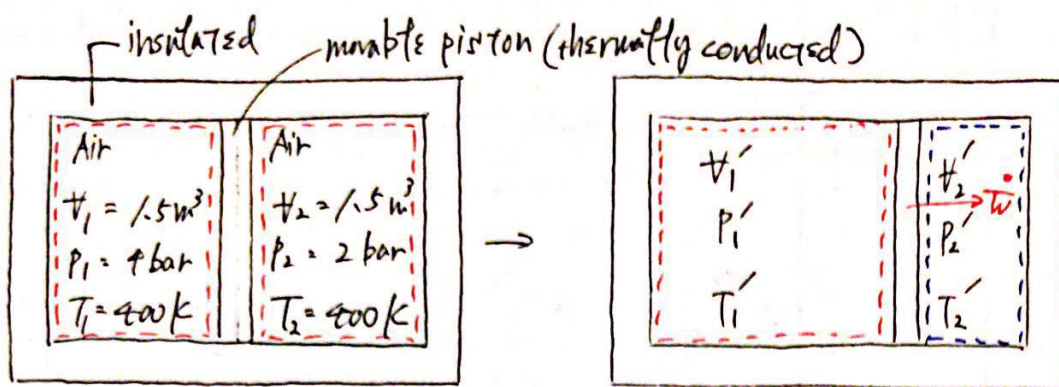 insulated
movable piston (thermally conducted)
Air
V₁ = 1.5 m³
P₁ = 4 bar
T₁ = 400 K
Air
V₂ = 1.5 m³
P₂ = 2 bar
T₂ = 400 K
→
V₁′
P₁′
T₁′
V₂′
Ẇ
P₂′
T₂′